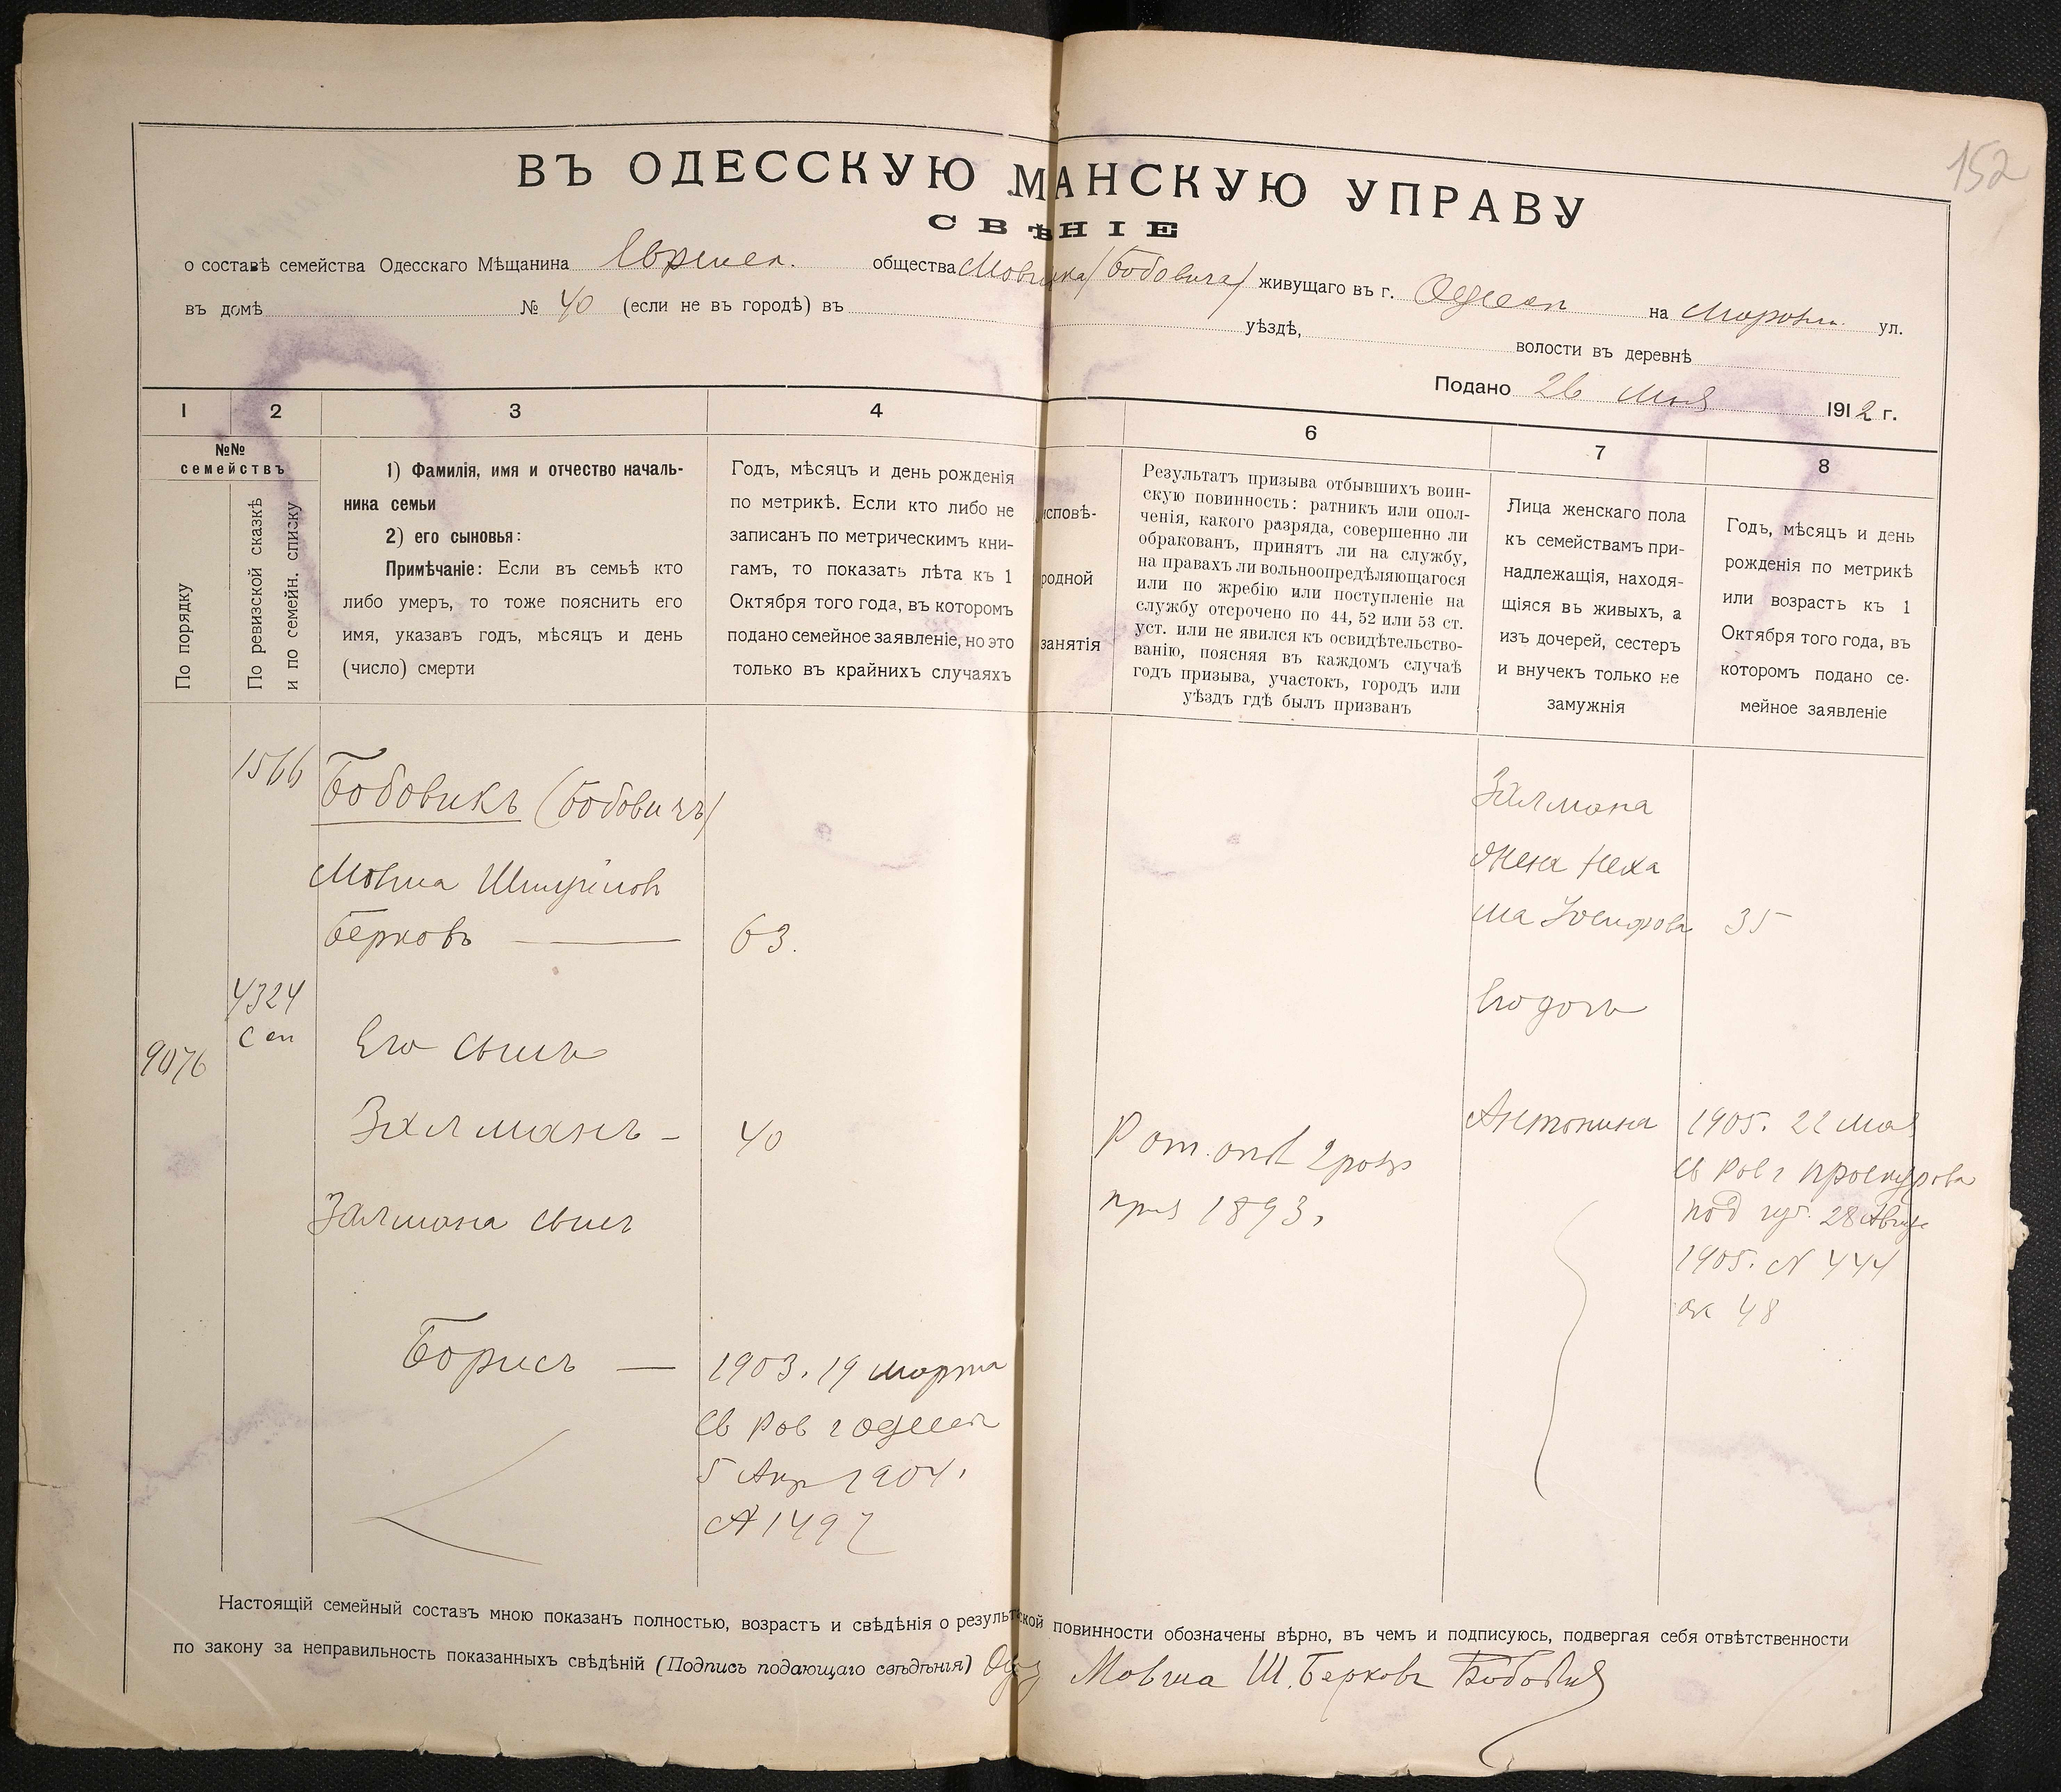 152
ВЪ ОДЕССКУЮ МАНСКУЮ УПРАВУ
СВѢНІЕ
о составѣ семейства Одесскаго Мѣщанина общества /Бобовича/ живущаго въ г. Одессѣ на ул.
въ домѣ № 40 (если не въ городѣ) въ уѣздѣ, волости въ деревнѣ
Подано 26 Мая 1912 г.
1 2 3 4 6 7 8
№№
семействъ
По порядку
По ревизской сказкѣ
и по семейн. списку
1) Фамилія, имя и отчество началь-
ника семьи
2) его сыновья:
Примѣчаніе: Если въ семьѣ кто
либо умеръ, то тоже пояснить его
имя, указавъ годъ, мѣсяцъ и день
(число) смерти
Годъ, мѣсяцъ и день рожденія
по метрикѣ. Если кто либо не
записанъ по метрическимъ кни-
гамъ, то показать лѣта къ 1
Октября того года, въ которомъ
подано семейное заявленіе, но это
только въ крайнихъ случаяхъ
исповѣ-
родной
занятія
Результатъ призыва отбывшихъ воин-
скую повинность: ратникъ или опол-
ченія, какого разряда, совершенно ли
обракованъ, принятъ ли на службу,
на правахъ ли вольноопредѣляющагося
или по жребію или поступленіе на
службу отсрочено по 44, 52 или 53 ст.
уст. или не явился къ освидѣтельство-
ванію, поясняя въ каждомъ случаѣ
годъ призыва, участокъ, городъ или
уѣздъ гдѣ былъ призванъ
Лица женскаго пола
къ семействамъ при-
надлежащія, находя-
щіяся въ живыхъ, а
изъ дочерей, сестеръ
и внучекъ только не
замужнія
Годъ, мѣсяцъ и день
рожденія по метрикѣ
или возрастъ къ 1
Октября того года, въ
которомъ подано се-
мейное заявленіе
1566 Бобовикъ (Бобовичъ)
Мовша
Берковъ — 63.
4324
Сп
9076
Его сынъ
Залманъ - 40
Рат. опол 2 разр
приз 1893.
Залмана сынъ
Борисъ — 1903. 19 марта
Св Рав г Одессы
5 Апр 1904.
№ 1497
Залмана
жена Неха
ма Іосифова 35
Его дочь
Антонина 1905. 22 Мая
Св Рав г Проскурова
Под губ. 28 Авгус
1905. № 444
48
Настоящій семейный составъ мною показанъ полностью, возрастъ и свѣдѣнія о результской повинности обозначены вѣрно, въ чемъ и подписуюсь, подвергая себя отвѣтственности
по закону за неправильность показанныхъ свѣдѣній (Подпись подающаго свѣдѣнія) Мовша Ш. Берковъ